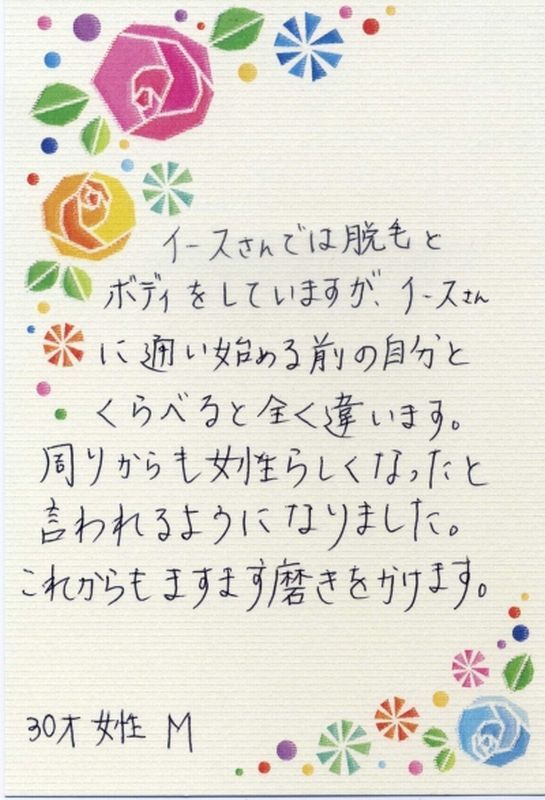 イースさんでは脱毛と
ボディをしていますが、イースさん
に通い始める前の自分と
くらべると全く違います。
周りからも女性らしくなったと
言われるようになりました。
これからもますます磨きをかけます。
30才 女性 M